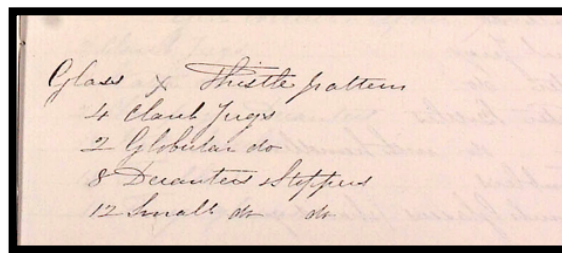 Glass X Thistle pattern
4 Claret Jugs
2 Globular do
8 Decanters & Stoppers
12 Small do do